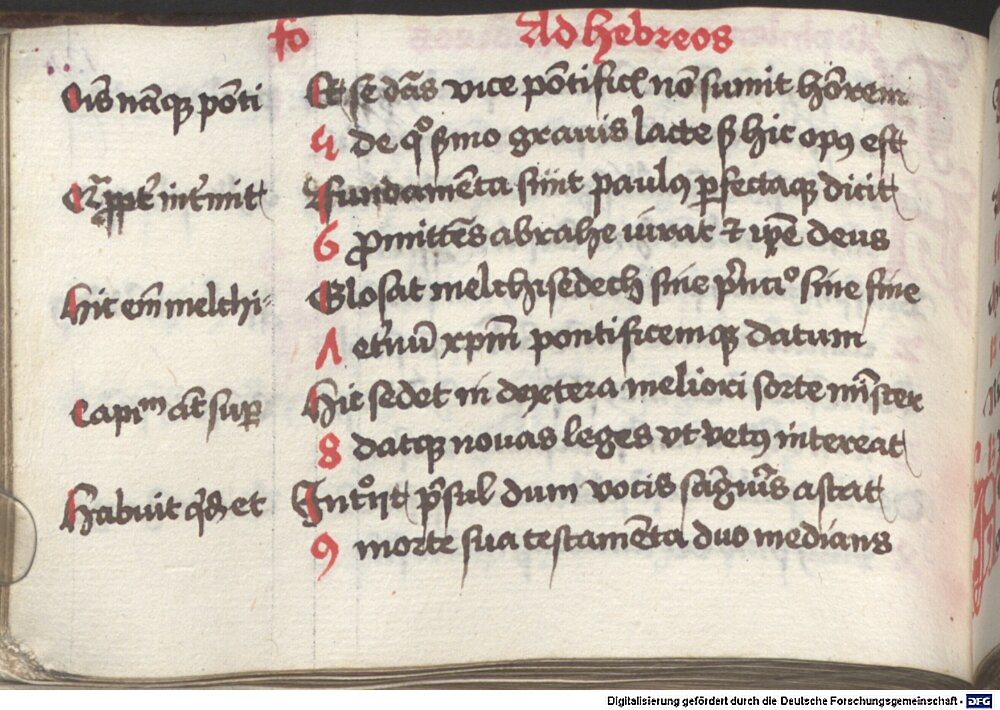 fo Ad hebreos
Oīs nāqꝫ pōti Et se dās vice pōtificꝭ nō sumit hōrem
5 de qͦ s̄mo grauis lacte s̄ hic opꝰ est
Qͣꝓpt̄ int̄mit Fundamēta sūnt paulꝰ ꝑfectaqꝫ dicit
6 ꝓmittēs abrahe iurat ⁊ ip̄e deus
Hic em̄ melchi- Glosat melchisedech sine p̄ncͦ sine fine
7 et̄nū xp̄m pontificemqꝫ datum
Capitᵐ āt suꝑ Hic sedet in dextera meliori sorte mīster
8 datqꝫ nouas leges vt vetꝰ intereat
Habuit qͥdē et Introijt p̄sul dum vocis astat
9 morte sua testamēta duo medians
Digitalisierung gefördert durch die Deutsche Forschungsgemeinschaft - DFG